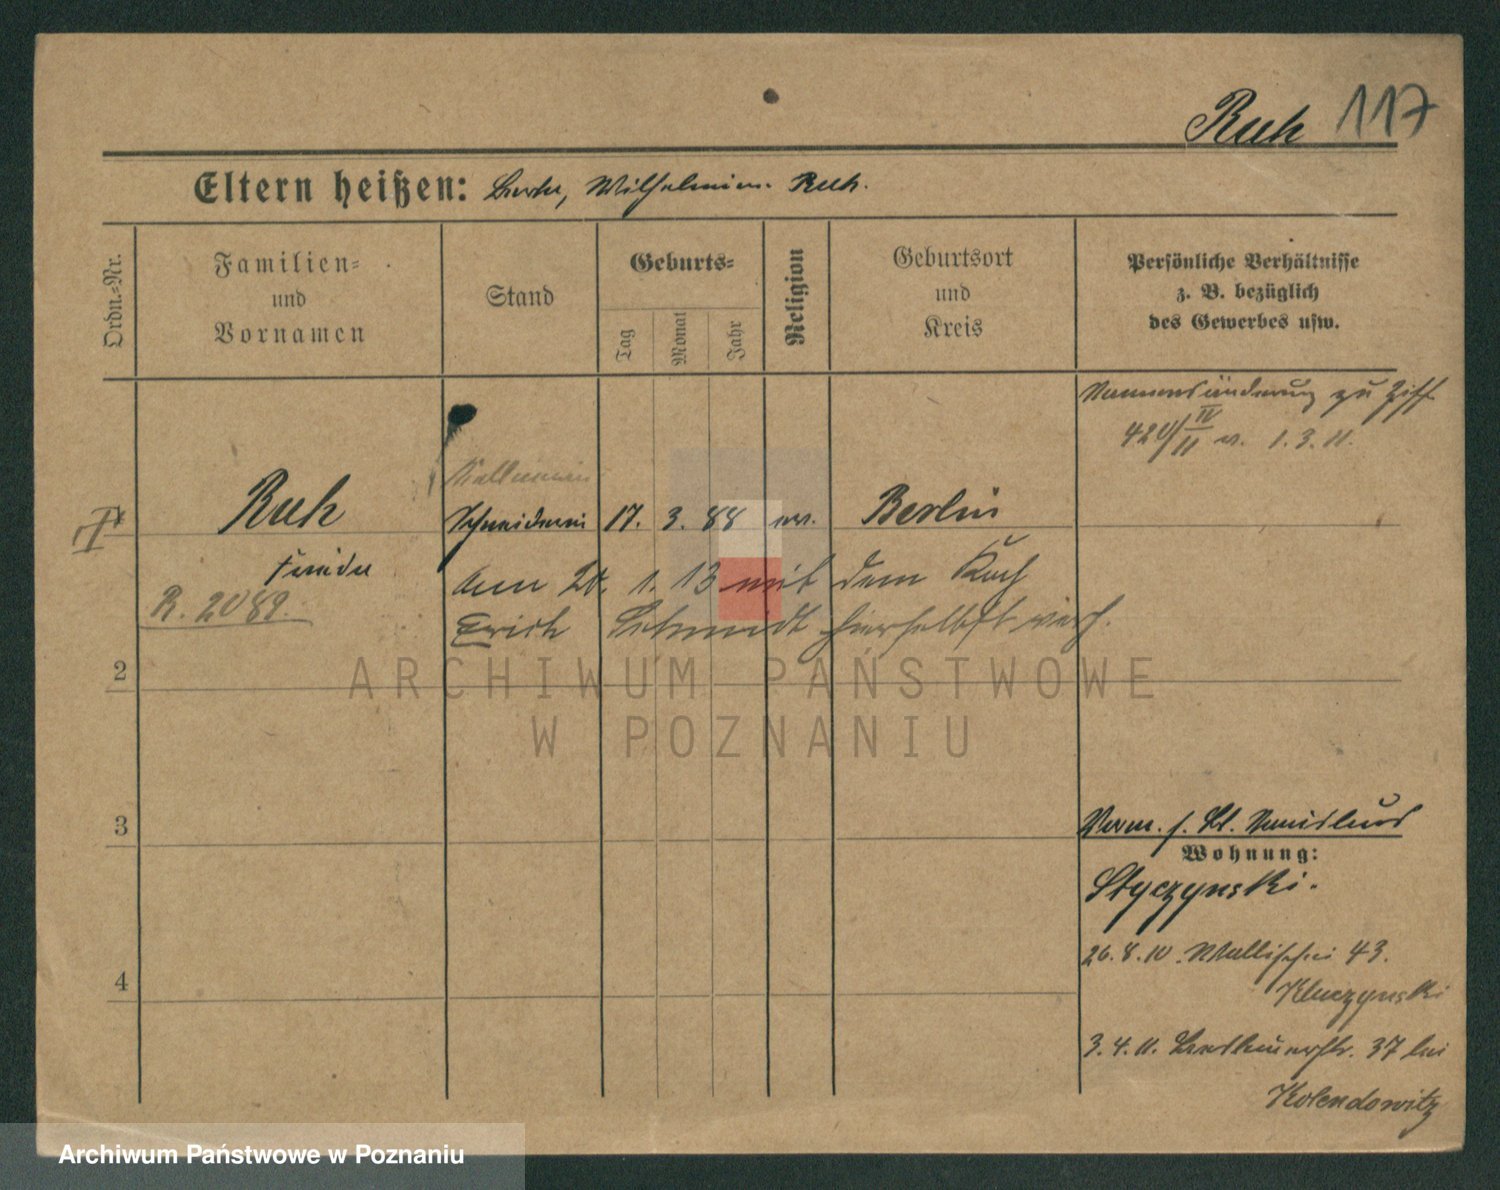 Ruh 117
Eltern heißen: Wilhelmine Ruh.
Ordn.-Nr.
Familien-
und
Vornamen
Stand
Geburts-
Tag
Monat
Jahr
Religion
Geburtsort
und
Kreis
Persönliche Verhältnisse
z. B. bezüglich
des Gewerbes usw.
Namensänderung zu Ziff
1. 3. 11.
Ruh
Kellnerin
Schneiderin
17. 3. 88 ev.
Berlin
Frieda
R. 2089.
am 1. 13 mit dem Koch
Erich Schmidt hierselbst verh.
2
3
4
Wohnung:
Styczynski.
26. 8. 10. Wallischei 43.
Kluczynski
3. 4. 11. 37 bei
Kolendowitz
ARCHIWUM PAŃSTWOWE
W POZNANIU
Archiwum Państwowe w Poznaniu